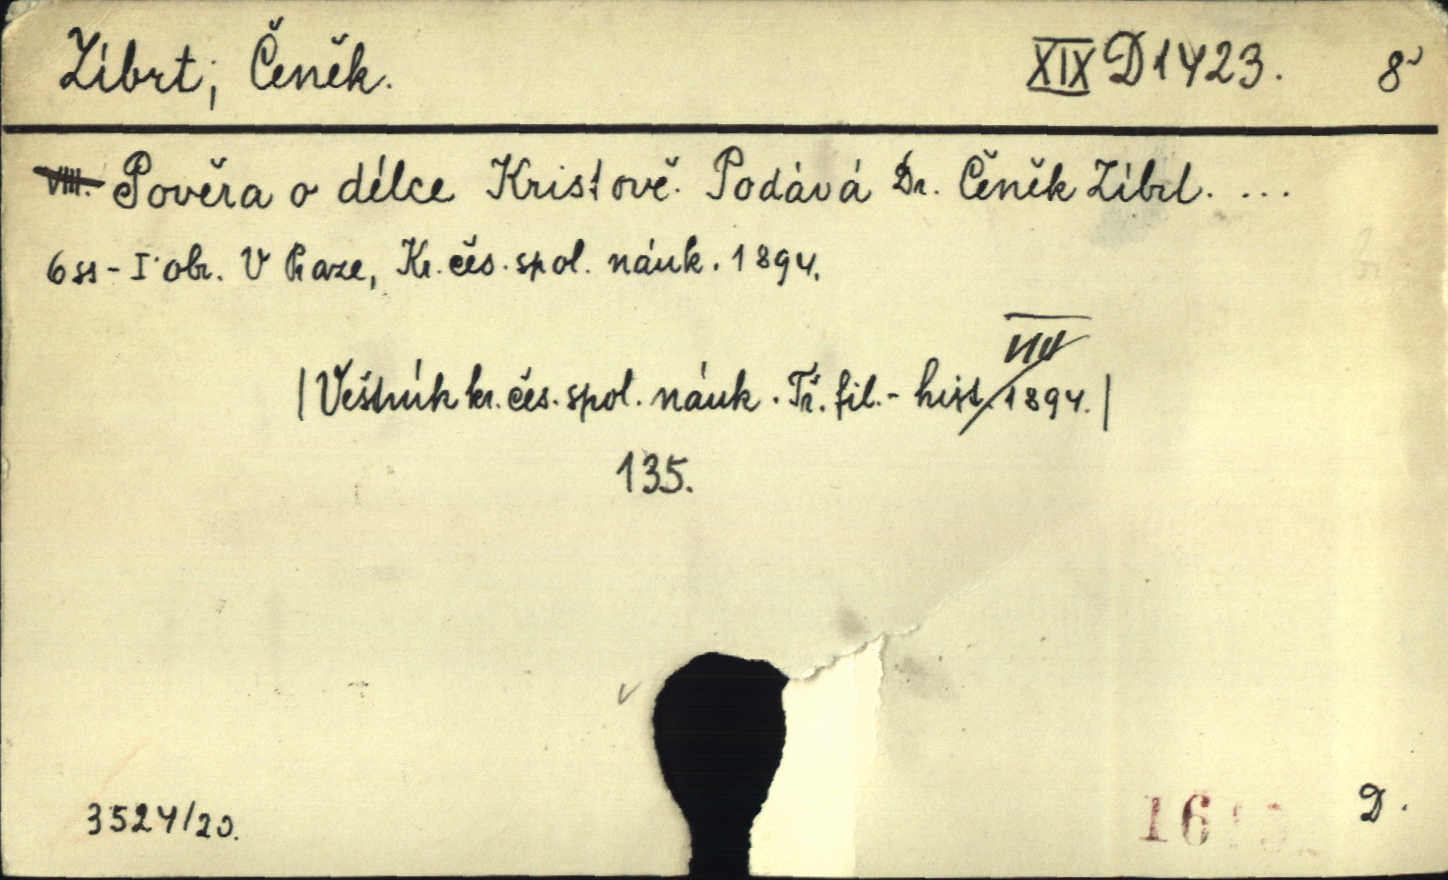 Zíbrt, Čeněk. XIX D 1423. 8°
VIII. Pověra o délce Kristově. Podává Dr. Čeněk Zíbrt. ...
6 ss - I obr. V Praze, Kr. čes. spol. náuk. 1894.
VIII
|Věstník kr. čes. spol. náuk. Tř. fil. - hist. 1894.|
135.
3524/20. D.